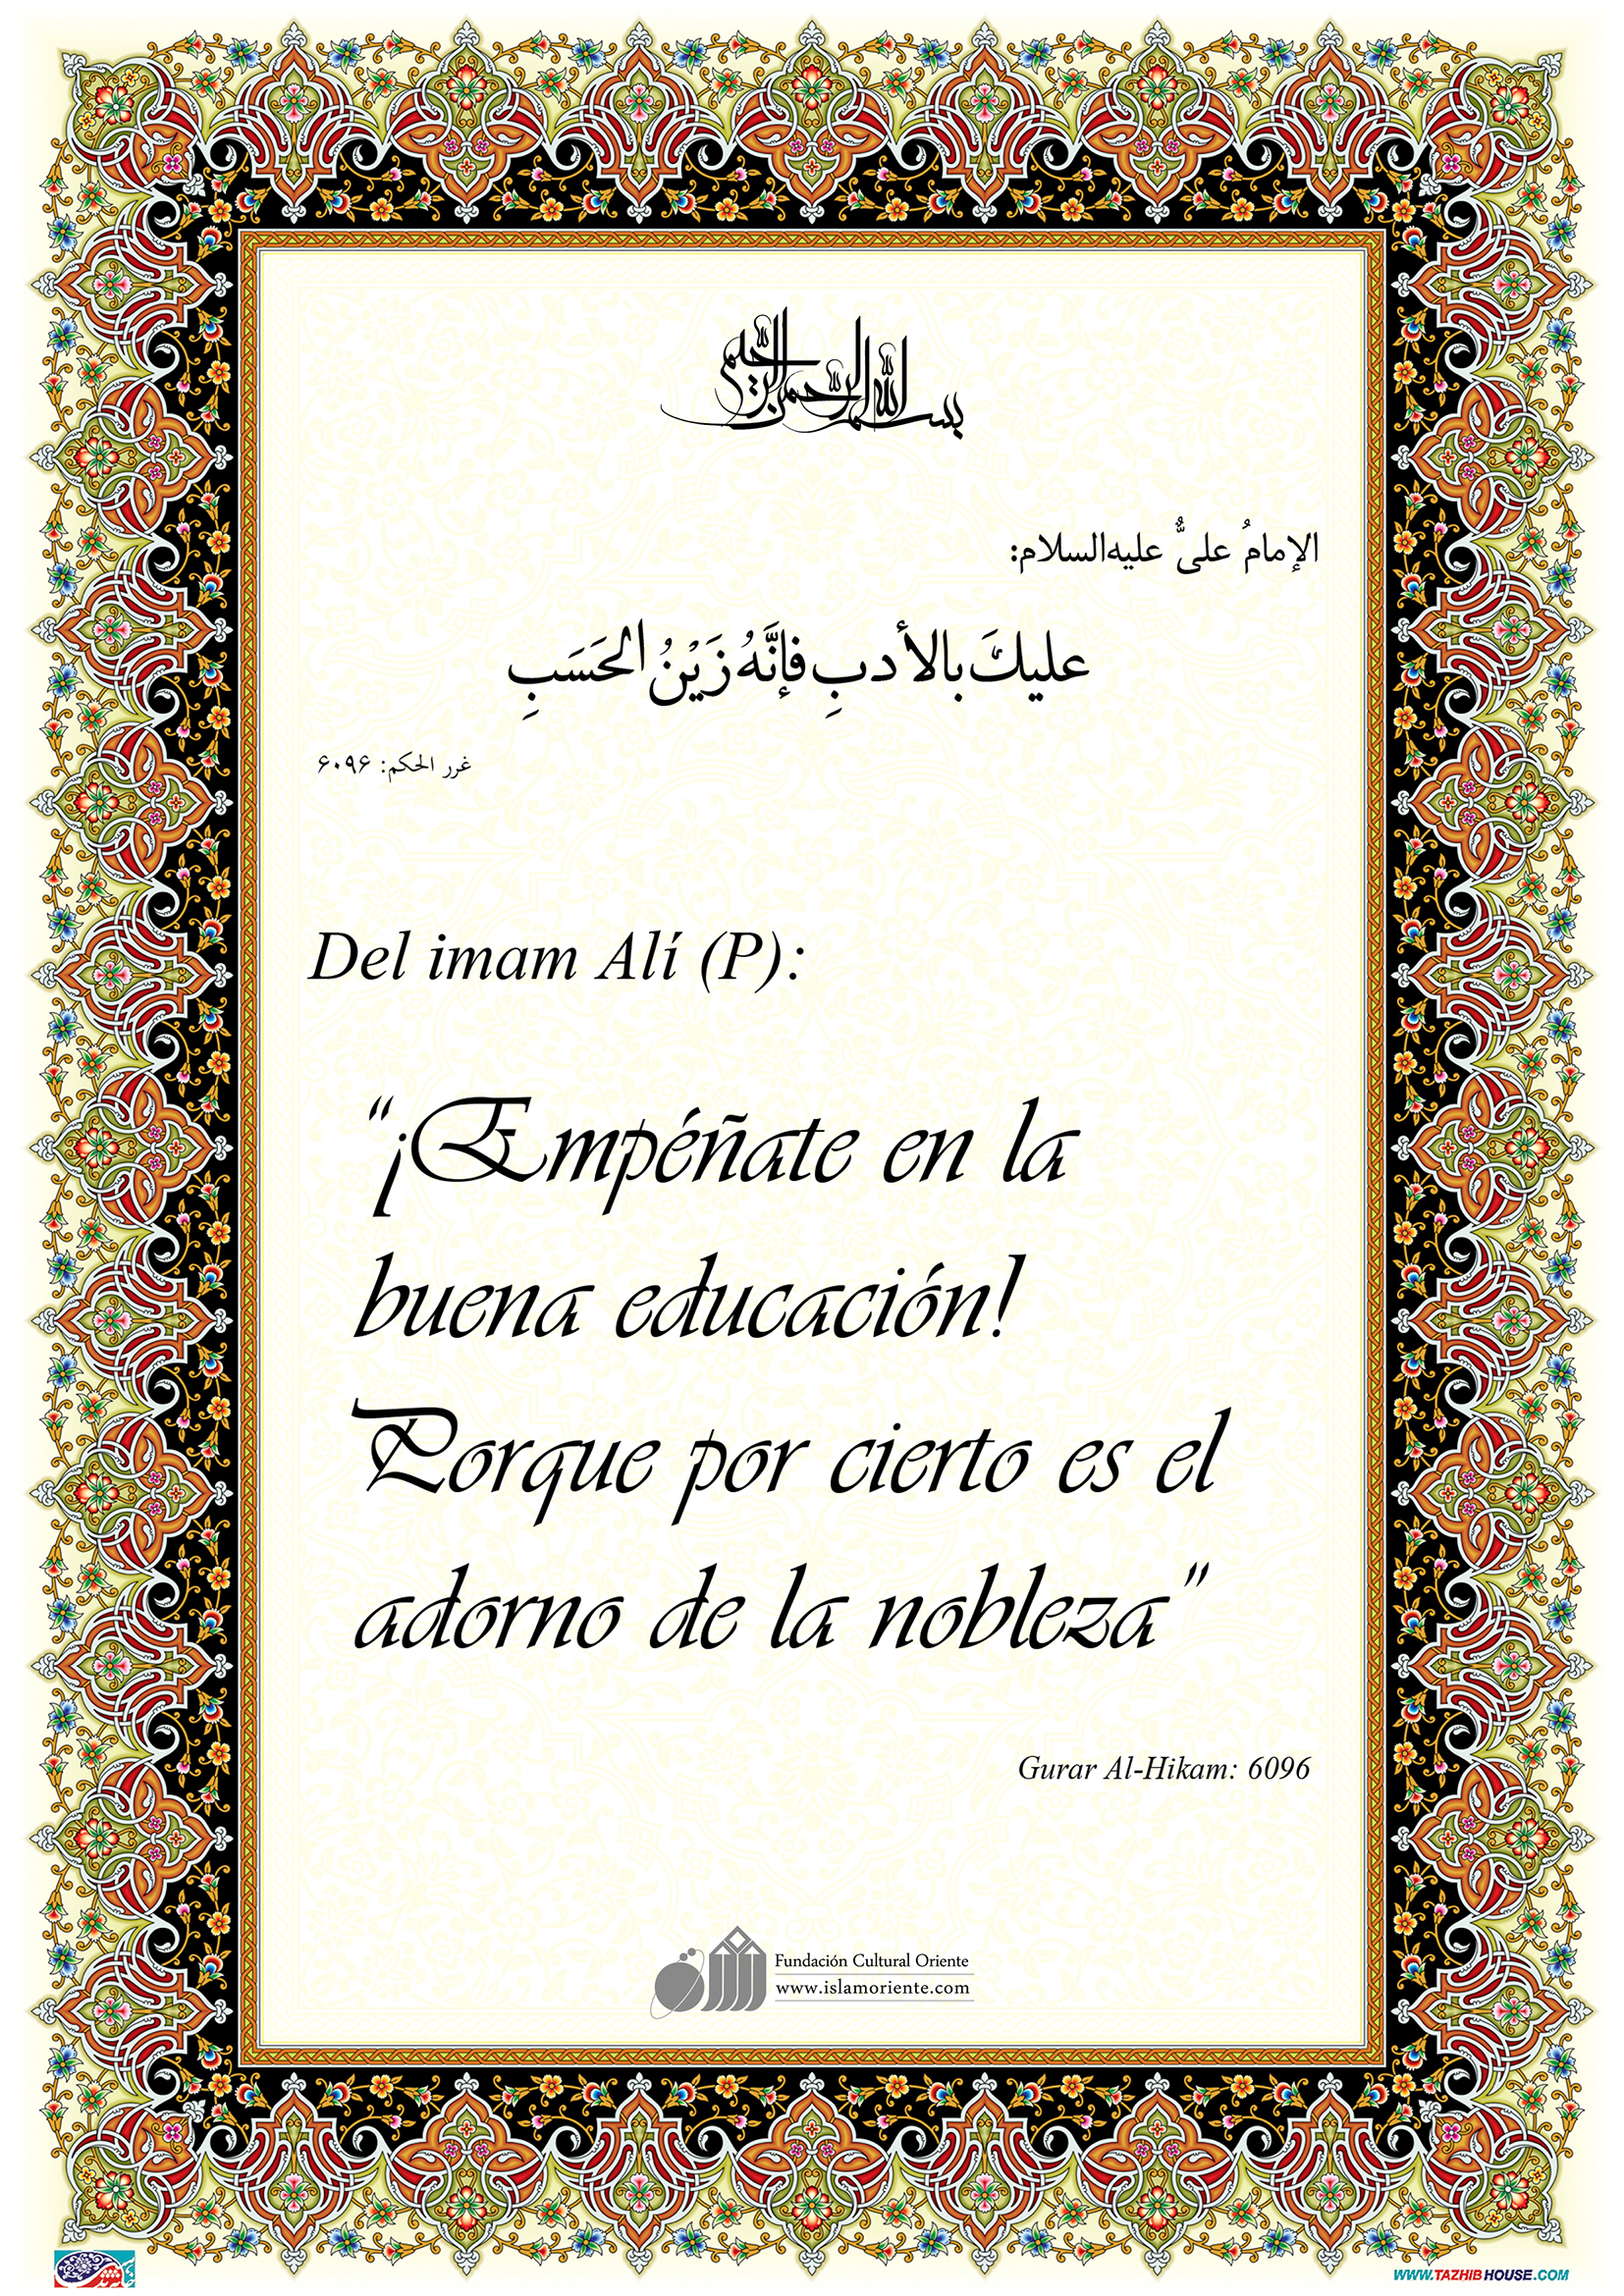 بسم الله الرحمن الرحیم
الإمامُ علیٌّ علیه‌السلام:
علیكَ بالأدبِ فإنَّهُ زَیْنُ الحَسَبِ
غرر الحکم: ۶۰۹۶
Del imam Alí (P):
“¡Empéñate en la
buena educación!
Porque por cierto es el
adorno de la nobleza”
Gurar Al-Hikam: 6096
Fundación Cultural Oriente
www.islamoriente.com
WWW.TAZHIBHOUSE.COM